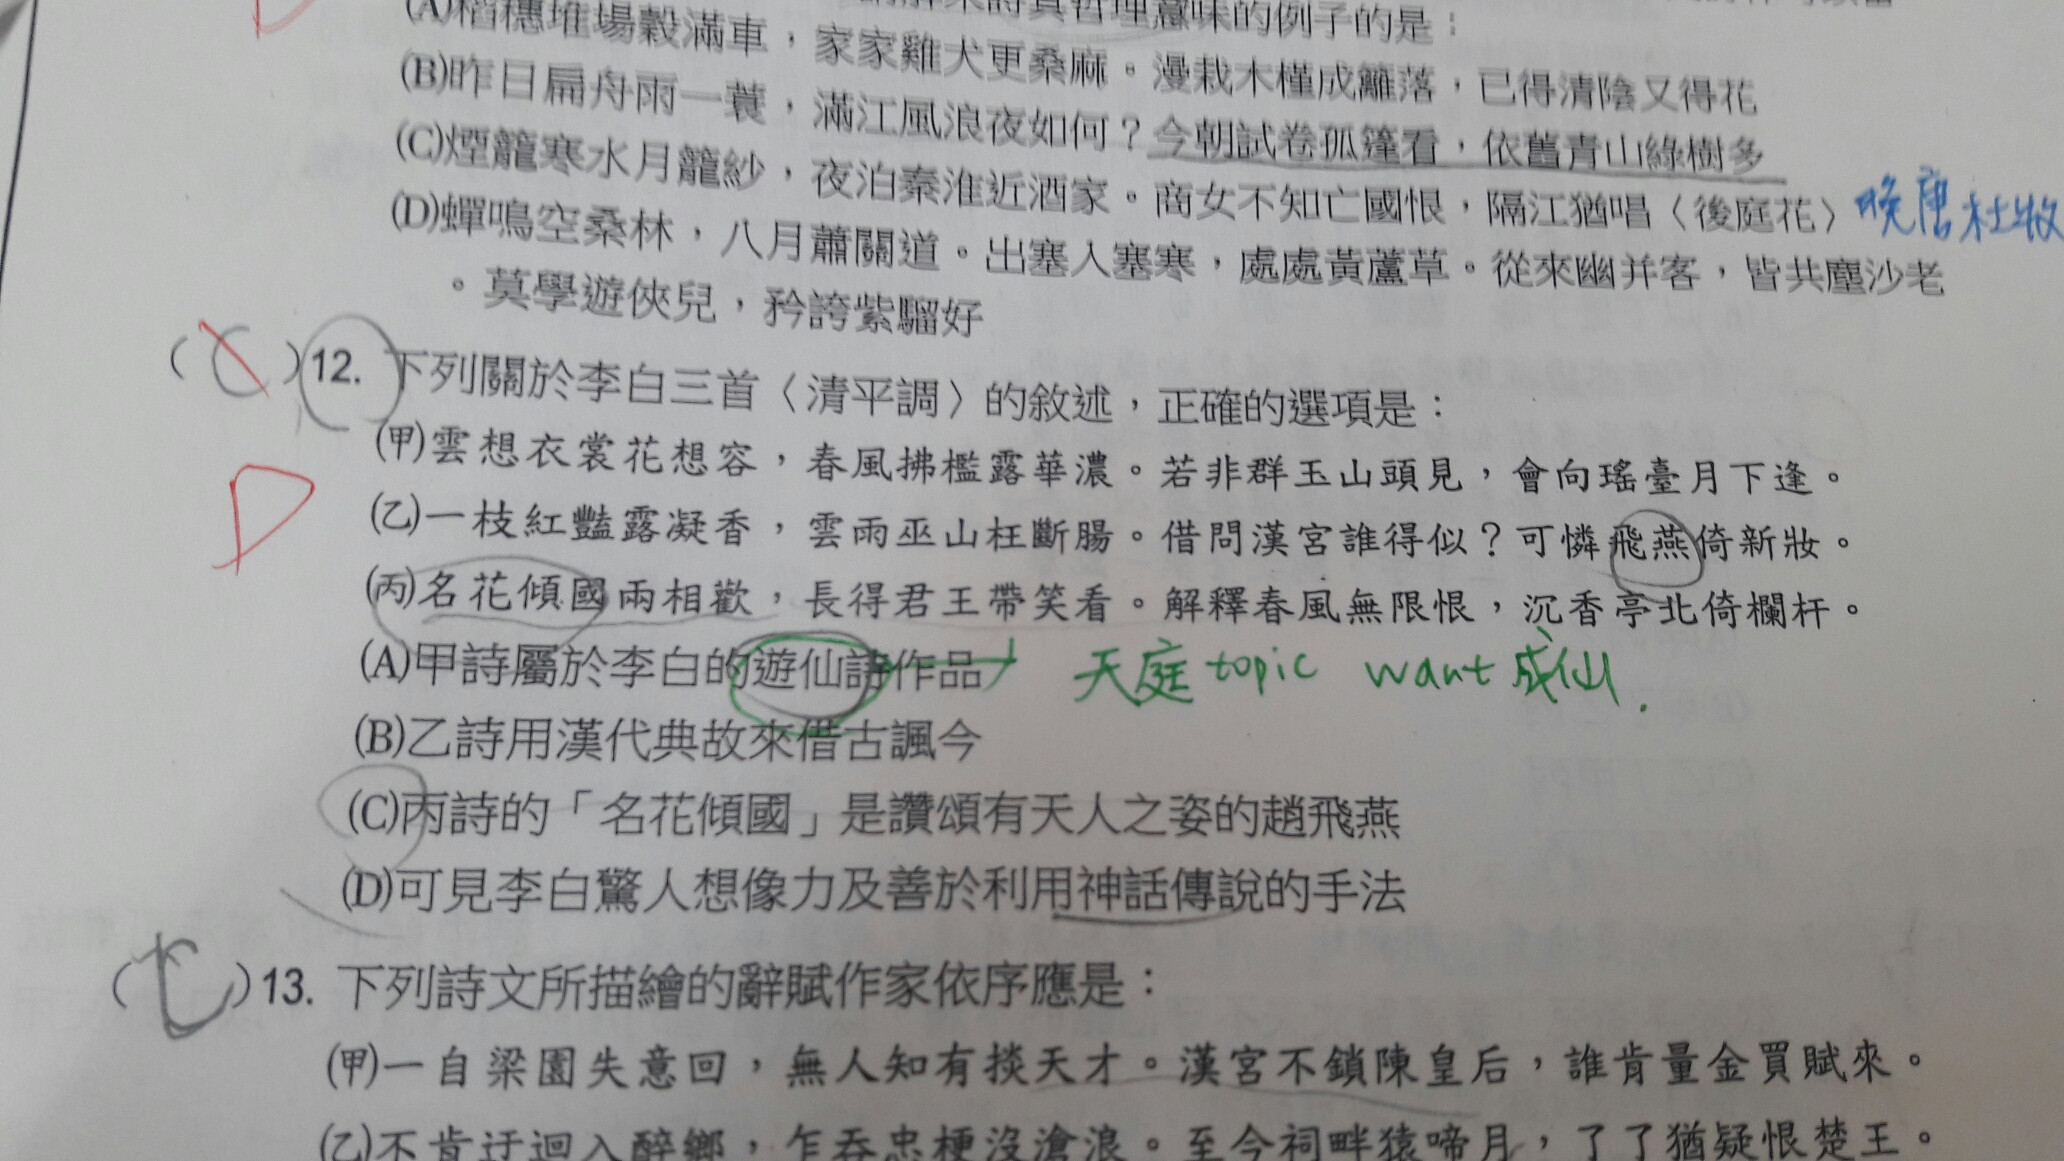 意味的例子的是：
(A)稻穗堆場穀滿車，家家雞犬更桑麻。漫栽木槿成籬落，已得清陰又得花
(B)昨日扁舟雨一蓑，滿江風浪夜如何？今朝試卷孤篷看，依舊青山綠樹多
(C)煙籠寒水月籠紗，夜泊秦淮近酒家。商女不知亡國恨，隔江猶唱〈後庭花〉 晚唐杜牧
(D)蟬鳴空桑林，八月蕭關道。出塞入塞寒，處處黃蘆草。從來幽并客，皆共塵沙老
。莫學遊俠兒，矜誇紫騮好
( C )12. 下列關於李白三首〈清平調〉的敘述，正確的選項是：
(甲)雲想衣裳花想容，春風拂檻露華濃。若非群玉山頭見，會向瑤臺月下逢。
D
(乙)一枝紅豔露凝香，雲雨巫山枉斷腸。借問漢宮誰得似？可憐飛燕倚新妝。
(丙)名花傾國兩相歡，長得君王帶笑看。解釋春風無限恨，沉香亭北倚欄杆。
(A)甲詩屬於李白的遊仙詩作品 → 天庭 topic want 成仙.
(B)乙詩用漢代典故來借古諷今
(C)丙詩的「名花傾國」是讚頌有天人之姿的趙飛燕
(D)可見李白驚人想像力及善於利用神話傳說的手法
( C )13. 下列詩文所描繪的辭賦作家依序應是：
(甲)一自梁園失意回，無人知有掞天才。漢宮不鎖陳皇后，誰肯量金買賦來。
(乙)不肯迂迴入醉鄉，乍吞忠梗沒滄浪。至今祠畔猿啼月，了了猶疑恨楚王。